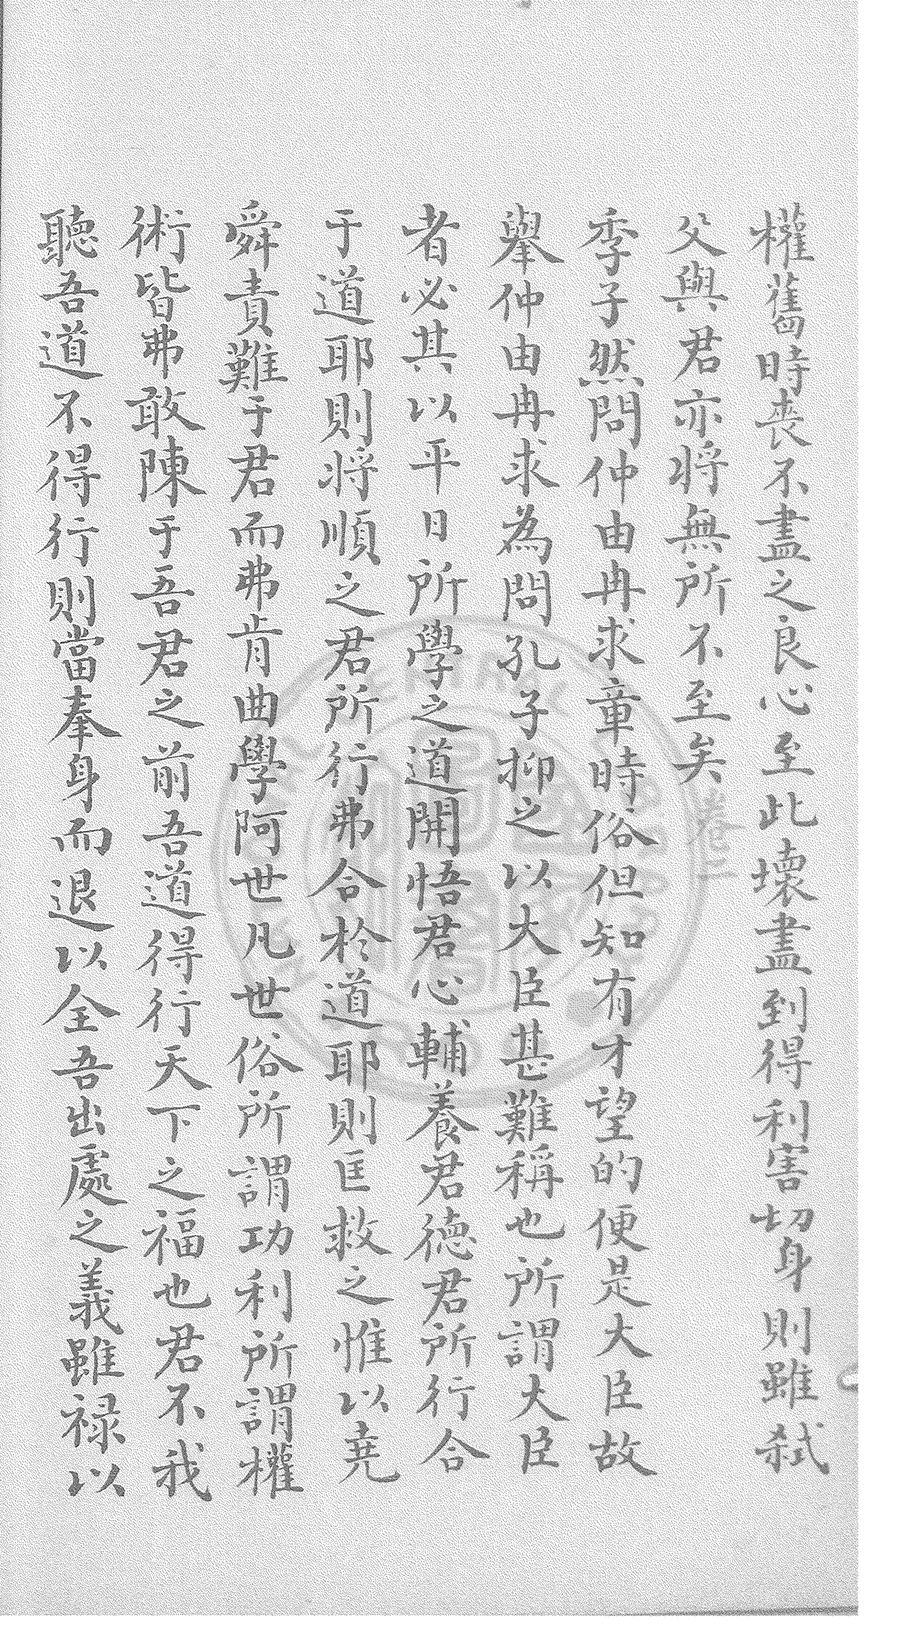 權舊時喪不盡之良心至此壞盡到得利害切身則雖弒
父與君亦將無所不至矣
卷二
季子然問仲由冉求章時俗但知有才望的便是大臣故
舉仲由冉求為問孔子抑之以大臣甚難稱也所謂大臣
者必其以平日所學之道開悟君心輔養君德君所行合
于道耶則將順之君所行弗合於道耶則匡救之惟以堯
舜責難于君而弗肯曲學阿世凡世俗所謂功利所謂權
術皆弗敢陳于吾君之前吾道得行天下之福也君不我
聽吾道不得行則當奉身而退以全吾出處之義雖祿以